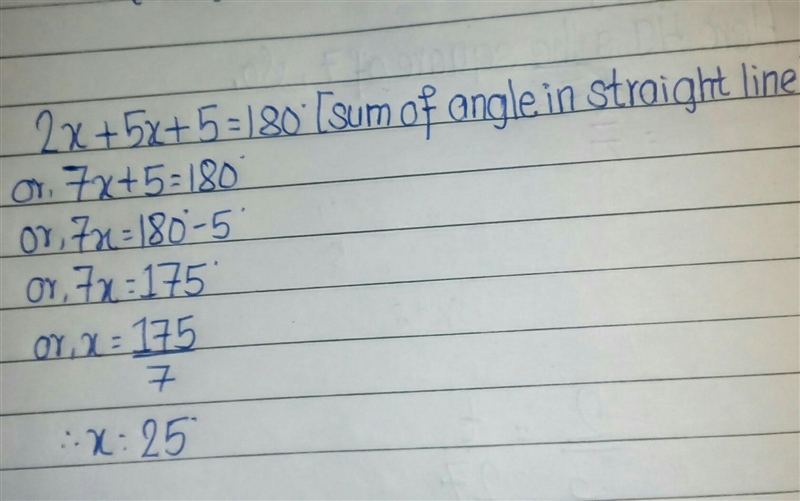 2x+5x+5=180° [sum of angle in straight line
or, 7x+5=180°
or, 7x=180°-5°
or, 7x=175°
or, x=175/7
∴x=25°